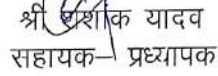 श्री शशांक यादव
सहायक- प्रध्यापक